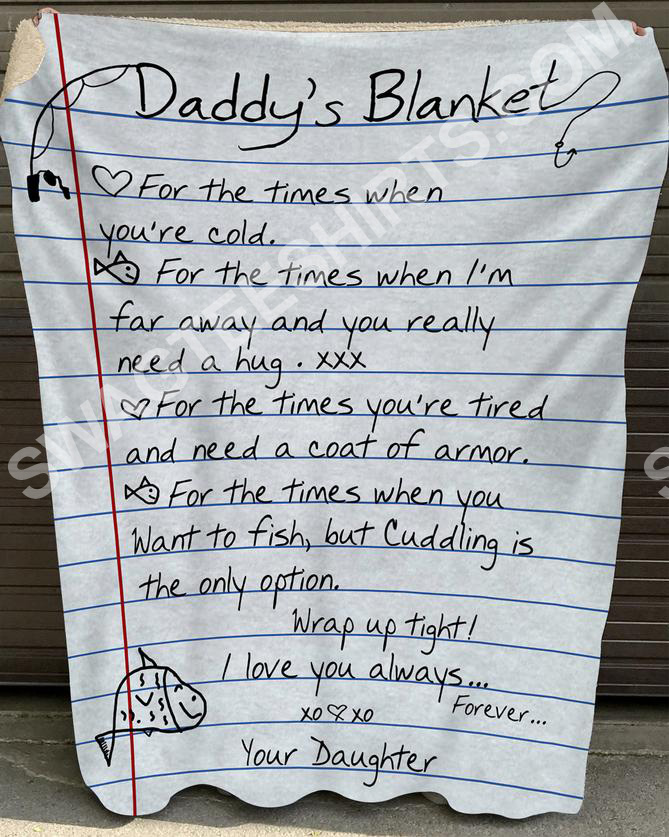 Daddy's Blanket
For the times when
you're cold.
For the times when I'm
far away and you really
need a hug. xxx
For the times you're tired
and need a coat of armor.
For the times when you
Want to fish, but Cuddling is
the only option.
Wrap up tight!
I love you always...
Forever...
xo xo
Your Daughter
SWAGTEESHIRTS.COM
S